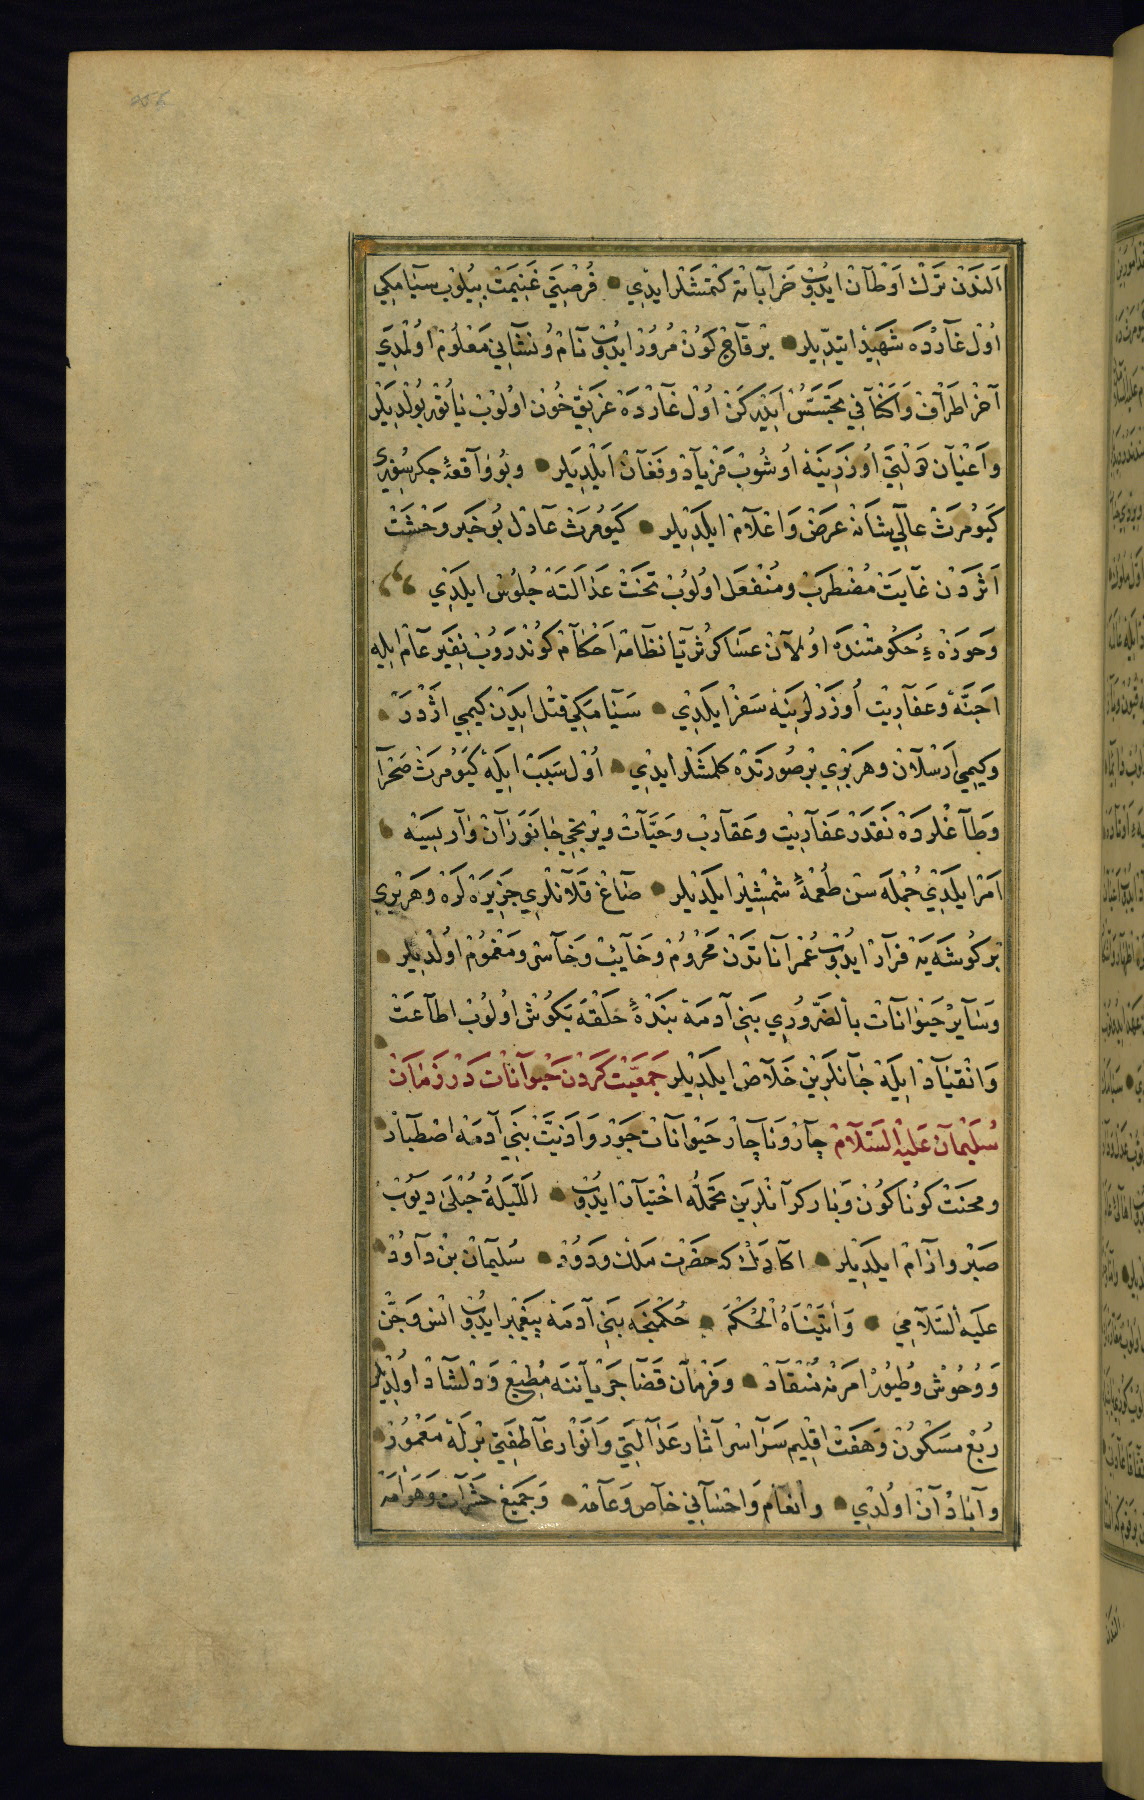 اَلندَنْ تَرْكْ اَوْطَآنْ ايدُوْبْ خَرآبَاتَه كتْمشْلَرايدِي فُرْصِتَي غَنِيمَتْ بِيلُوْبْ سيَآمِكي
اُوْلْ غآرْدَه شَهِيدْ ايتدِيلر بْرقاچ كوُنْ مُرُورْ ايدُوْبْ نآمْ وُنشآنِي مَعْلوُمْ اوُلْمَدِي
آخْر اطرَآفْ وَاكنآفي تجَسّسْ ايدَركَنْ اوُلْ غآرْدَه غرَيْقِ خُون اوُلوُبْ ياتُوْر بُولدِيلَر
وَاعْيَآن دَوْلتِي اُوزَرِينَه اُوشُوبْ فَرْيآدْ وفَغَآن ايَلْدِيلر وبُو وآقعهٔ جكر سُوزِي
كَيوُمرَثْ عالِي شآنَه عرَضْ وَاعْلآمْ ايلَدِيلر كَيوُمَرثْ عآدلْ بُو خَبر وَحْشَتْ
اَثْردَنْ غآيَتْ مُضْطربْ ومُنْفعَل اوُلوُبْ تخَتْ عَدالَتَه جُلوُسْ ايلَدِي
وَحَوزَهْءِ حُكُومتْندَه اوُلآنْ عسَاكر ثريّا نظآمَه اَحْكآمْ كوُندرُوْبْ نِفَيرِ عآمْ ايِله
اجَنّهٔ وَعَفآرِيْت اُوزَرلرِينَه سَفَر ايلَدِي سَيآمَكي قتْل ايَدَنْ كيمِي اژْدَرْ
وكيِمي اَرْسْلآنْ وهَربْرِي بْرصُورتَدَه كلمشْلَر ايدِي اُوْل سَببْ ايلَه كَيوُمَرثْ صَحْرآ
وَطآغْلَردَه نَقدَرْ عَفآرِيْت وَعَقآرِبْ وَحَيّآت وَيْرتجِي جَانَورَانْ وَار ايسَه
اَمْر ايلَدِي جُمْلَه سنْ طُعْمَهٔ شمْشِير ايلَدِيلر صَاغْ قَلآنلَرِي جَزِيرَه لرَه وَهَربْرِي
بْركوُشَه يَه فرَآرْ ايدُوْبْ عُمْرآناتدَنْ مَحْرُومْ وَخآيبْ وَخآسْر ومَغْمُومْ اوُلْدِيلر
وَسَآيرْ حَيْوانآتْ بالضّروُرِي بَنِي آدمَه بَندَهٔ حَلْقَه بكوُش اوُلوُبْ اطآعَتْ
وَانْقيَآدْ ايِلَه جَانلَرِين خَلآصْ ايلَدِيلر جَمعَيّتْ كَردَنْ حَيْوآنآتْ دَرْ زَمَانْ
سُليْمآنْ عَليْه السّلآمْ چآرْ وَنَا چآرْ حَيْوانآتْ جَوْر وَاذيّتْ بنِي آدمَه اصْطبآرْ
ومحنَتْ كوُناكوُن وَبَاركرآنْلرِينَ تحمّلُه اخْتيآرْ ايدُوْبْ اَللّيْلَةُ حُبْلَى ديوُبْ
صَبْر وآرْامْ ايلَدِيلر اكا دَكْ كه حضْرت مَلك ودَوُدْ سُليْمآنْ بنْ دآوُدْ
عليه السّلآمِي وَاٰتَيْنَاهُ الْحُكْمَ حُكمنجَه بَنِي آدمَه پيغمْبر ايدُوْبْ انْس وَجنْ
وَوُحُوش وَطيُورْ امْرنَه مُنْقآدْ وَفرْمآن قَضآ جَرْيآننَه مُطِيعْ وَدلشآدْ اوُلْدِيلر
رُبعْ مسْكوُنْ وَهَفتْ اقلِيم سَرآسَر آثآر عَدآلتِي وَاَنْوآر عآطِفَتي بْرلَه مَعْمُورْ
وآبَادْ آنْ اوُلدِي وانعَام وَاحْسَآنِي خآص وَعآمَه وَجَميْع حَشَرآت وَهَوآمَه